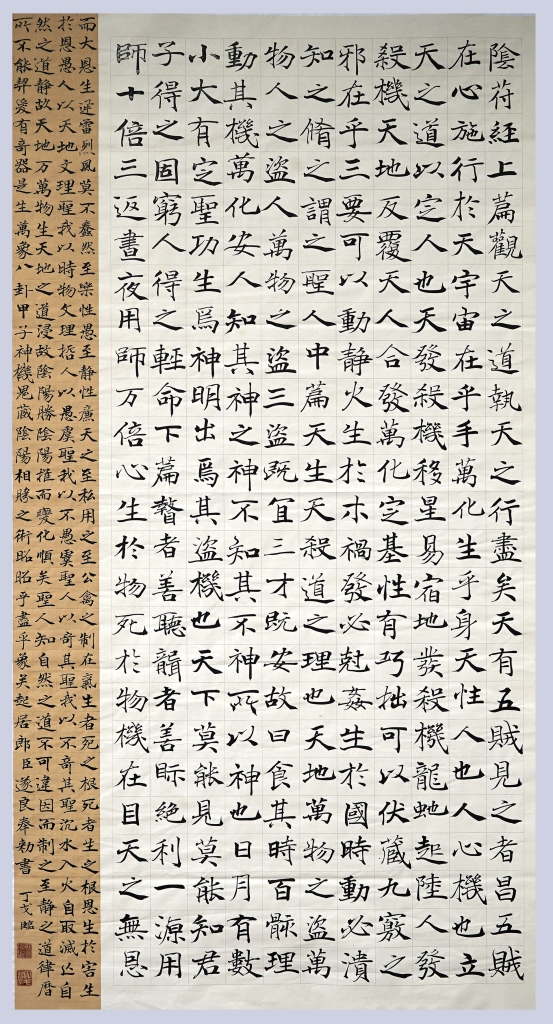 陰苻経上篇觀天之道執天之行盡矣天有五賊見之者昌五賊
在心施行於天宇宙在乎手萬化生乎身天性人也人心機也立
天之道以定人也天發殺機移星易宿地發殺機龍虵起陸人發
殺機天地反覆天人合發萬化定基性有巧拙可以伏藏九竅之
邪在乎三要可以動靜火生於木禍發必尅姦生於國時動必潰
知之脩之謂之聖人中篇天生天殺道之理也天地萬物之盜萬
物人之盜人萬物之盜三盜既宜三才既安故曰食其時百骸理
動其機萬化安人知其神之神不知其不神所以神也日月有數
小大有定聖功生焉神明出焉其盜機也天下莫能見莫能知君
子得之固窮人得之輕命下篇瞽者善聽聾者善眎絶利一源用
師十倍三返晝夜用師万倍心生於物死於物機在目天之無恩
而大恩生迅雷烈風莫不蠢然至樂性愚至靜性廉天之至私用之至公禽之制在氣生者死之根死者生之根恩生於害生
於恩愚人以天地文理聖我以時物文理哲人以愚虞聖我以不愚虞聖人以奇其聖我以不奇其聖沉水入火自取滅亡自
然之道靜故天地万萬物生天地之道浸故陰陽勝陰陽推而變化順矣聖人知自然之道不可違因而制之至靜之道律曆
所不能契爰有奇器是生萬象八卦甲子神機鬼藏陰陽相勝之術昭昭乎盡乎象矣起居郎臣遂良奉勅書 丁戈臨